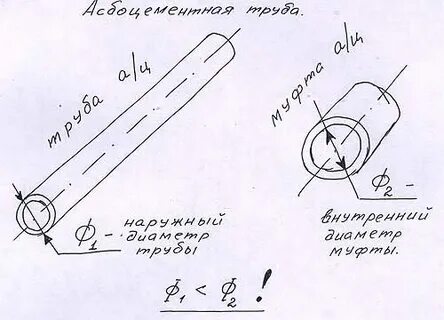 Асбоцементная труба.
труба а/ц
муфта а/ц
Ф1 – наружный
диаметр
трубы
Ф2 –
внутренний
диаметр
муфты.
Ф1 < Ф2 !